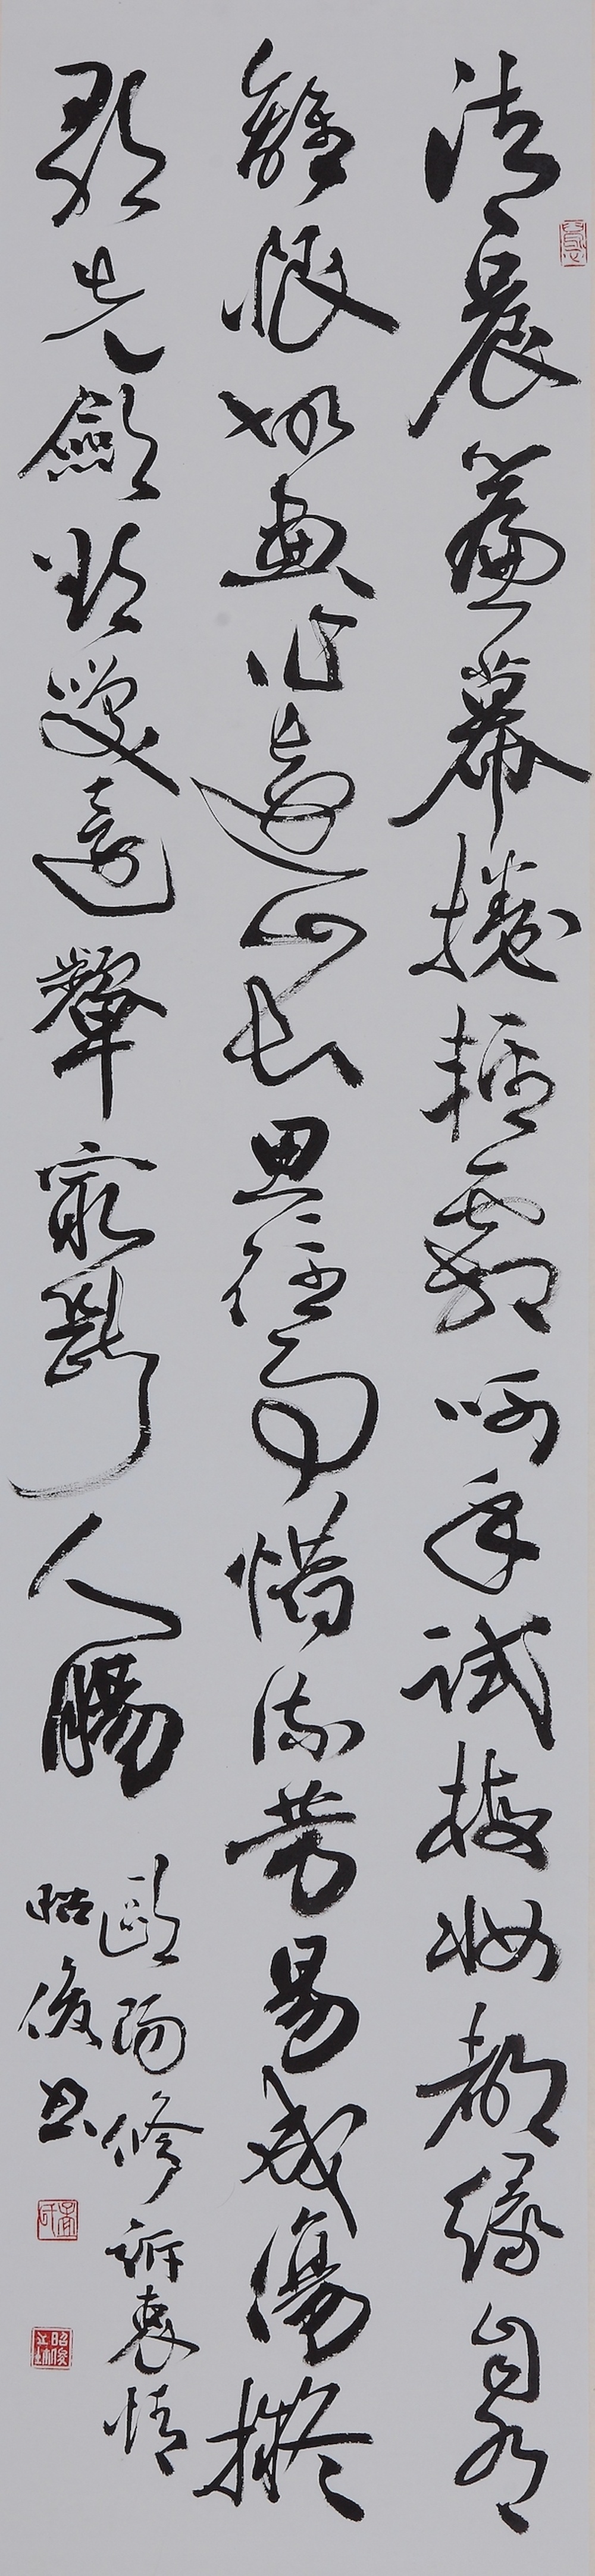 清晨簾幕捲輕霜呵手試梅妝都緣自有
離恨故畫作遠山長思往事惜流芳易成傷擬
歌先斂欲笑還顰最斷人腸
歐陽修訴衷情
昭俊書